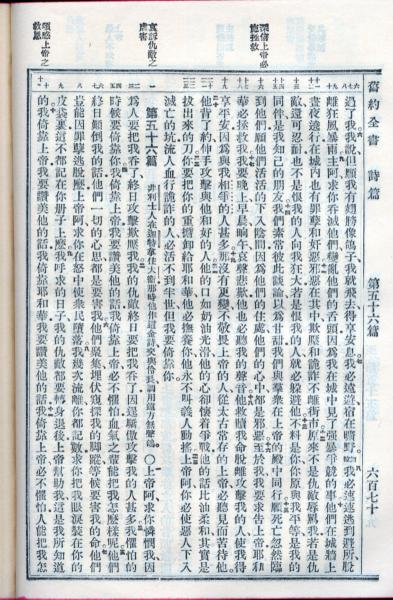 舊約全書 詩篇 第五十六篇 六百七十
深信上帝必施拯救
哀訴仇敵之虐害
頌讚上帝之救恩
過了。我我說但願我有翅膀像鴿子我就飛去得享安息我必遠遊宿在曠野我必速速逃到避所脫
離狂風暴雨主阿求你吞滅他們變亂他們的舌頭因為我在城中見了強暴爭競的事他們在城牆上
晝夜遶行在城內也有罪孽和奸惡邪惡在其中欺壓和詭詐不離街市原來不是仇敵辱罵我若是仇
敵還可忍耐也不是恨我的人向我狂大若是恨我的人就必躲避他不料是你你原與我平等是我的
同伴是我知己的朋友我們素常彼此談論以為甘甜我們與羣衆在上帝的殿中同行願死亡忽然臨
到他們願他們活活的下入陰間因為他們的住處他們的心中都是邪惡至於我我要求告上帝耶和
華必拯救我我要晚上早晨晌午哀聲悲歎他也必聽我的聲音他救贖我命脫離攻擊我的人使我得
享平安因為與我相爭的人甚多那沒有更變不敬畏上帝的人從太古常存的上帝必聽見而苦待他
他背了約伸手攻擊與他和好的人他的口如奶油光滑他的心卻懷着爭戰他的話比油柔和其實是
拔出來的刀你要把你的重擔卸給耶和華他必撫養你他永不叫義人動搖上帝阿你必使惡人下入
滅亡的坑流人血行詭詐的人必活不到半世但我要倚靠你
第五十六篇 非利士人在迦特拿住大衛那時他作這金詩交與伶長調用遠方無聲鴿 〇上帝阿求你憐憫我因
為人要把我吞了終日攻擊欺壓我我的仇敵終日要把我吞了因逞驕傲攻擊我的人甚多我懼怕的
時候要倚靠你我倚靠上帝我要讚美他的話我倚靠上帝必不懼怕血氣之輩能把我怎麼樣呢他們
終日顛倒我的話他們一切的心思都是要害我他們聚集埋伏窺探我的腳蹤等候要害我的命他們
豈能因罪孽逃脫麼上帝阿求你在怒中使衆民墮落我幾次流離你都記數求你把我眼淚裝在你的
皮袋裏這不都記在你冊子上麼我呼求的日子我的仇敵都要轉身退後上帝幫助我這是我所知道
的我倚靠上帝我要讚美他的話我倚靠耶和華我要讚美他的話我倚靠上帝必不懼怕人能把我怎